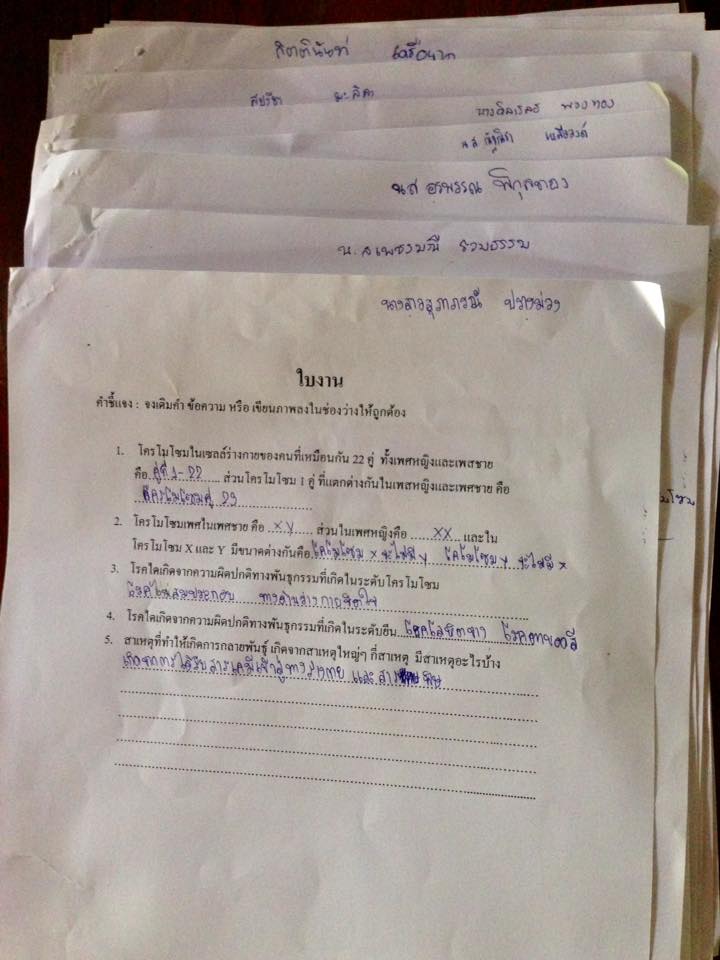 กิตตินันท์ เครือนาค
มะลิลา
พวงทอง
น.ส
น.ส อรพรรณ พิกุลทอง
น.ส เพชรมณี รวมธรรม
นางสาวสุภาภรณ์ ปรางม่วง
ใบงาน
คำชี้แจง : จงเติมคำ ข้อความ หรือ เขียนภาพลงในช่องว่างให้ถูกต้อง
1. โครโมโซมในเซลล์ร่างกายของคนที่เหมือนกัน 22 คู่ ทั้งเพศหญิงและเพสชาย
คือ คู่ที่ 1-22 ส่วนโครโมโซม 1 คู่ ที่แตกต่างกันในเพสหญิงและเพศชาย คือ
โครโมโซมคู่ 23
2. โครโมโซมเพศในเพศชาย คือ XY ส่วนในเพศหญิงคือ XX และใน
โครโมโซม X และ Y มีขนาดต่างกันคือ โคโมโซม X จะไม่มี y โคโมโซม y จะไม่มี x
3. โรคใดเกิดจากความผิดปกติทางพันธุกรรมที่เกิดในระดับโครโมโซม
โรคไม่สมประกอบ ทางด้านร่างกายจิตใจ
4. โรคใดเกิดจากความผิดปกติทางพันธุกรรมที่เกิดในระดับยีน โรคโลหิตจาง โรคตาบอดสี
5. สาเหตุที่ทำให้เกิดการกลายพันธุ์ เกิดจากสาเหตุใหญ่ๆ กี่สาเหตุ มีสาเหตุอะไรบ้าง
เกิดจากการได้รับสารเคมีเข้าสู่ทางร่างกาย และสารพิษ
มโซม